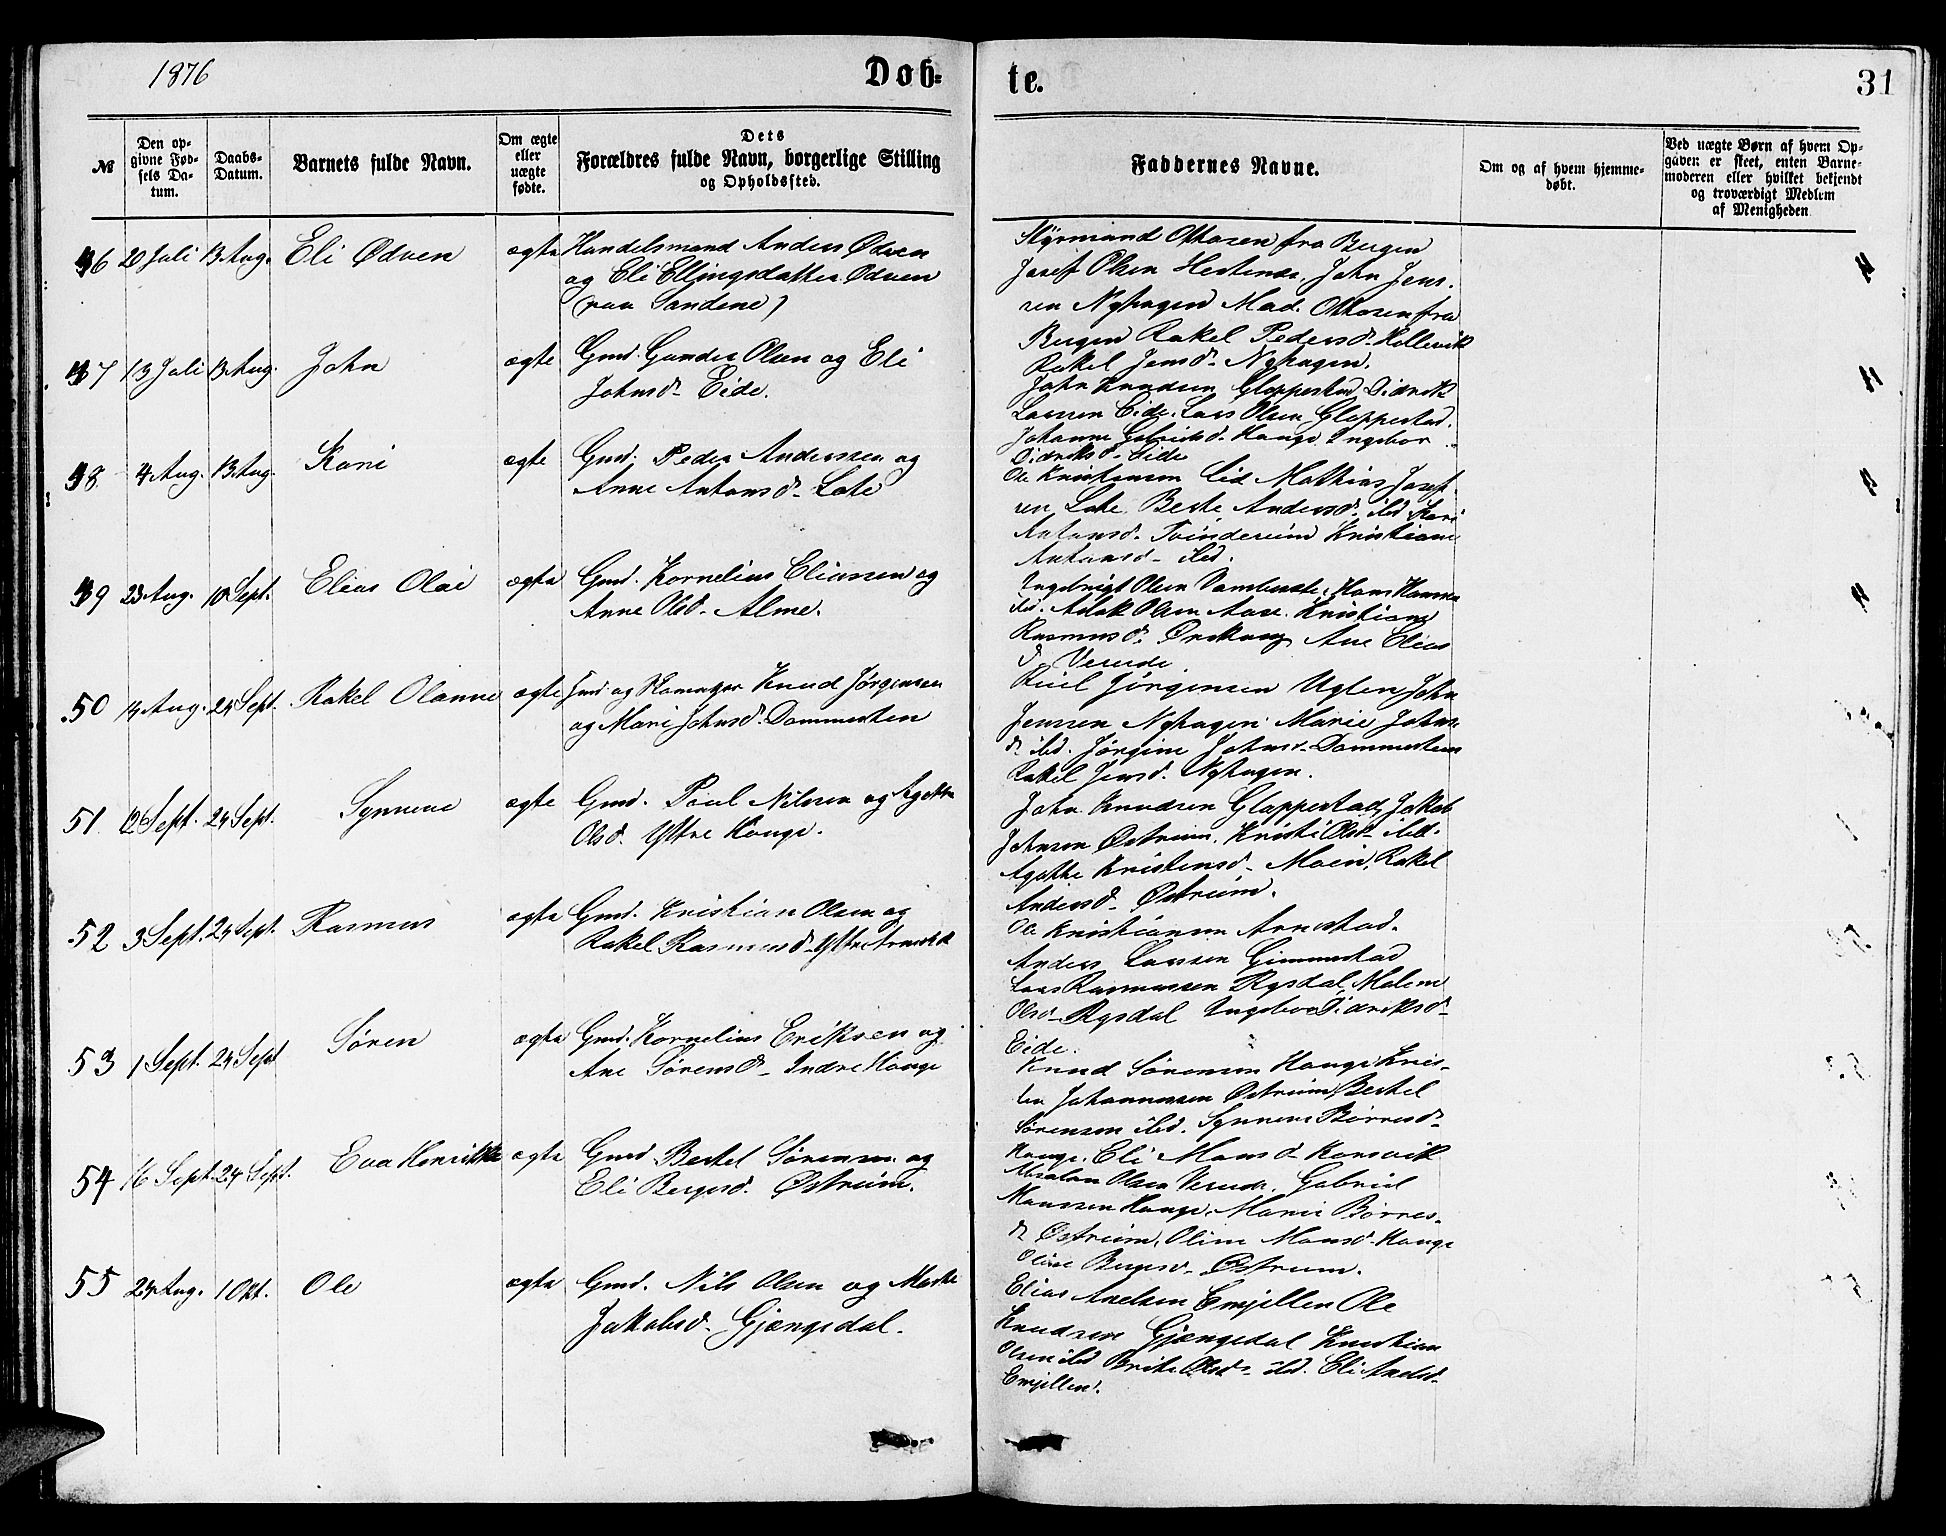 1876
Døb-
te.
31
№
Den op-
givne Fød-
sels Da-
tum.
Daabs-
Datum.
Barnets fulde Navn.
Om ægte
eller
uægte
fødte.
Dets
Forældres fulde Navn, borgerlige Stilling
og Opholdssted.
Faddernes Navne.
Om og af hvem hjemme-
døbt.
Ved uægte Børn af hvem Op-
gaven er skeet, enten Barne-
moderen eller hvilket bekjendt
og troværdigt Medlem
af Menigheden
46 20 Juli 13 Aug. Eli Ødven ægte Handelsmand Anders Ødven
og Eli Ellingsdatter Ødven
(paa Sandene)
Styrmand Ottosen fra Bergen
Josef Olsen Hestenes, John Jens-
sen Nyhagen Mad. Ottosen fra
Bergen Rakel Pedersd. Hellevik
Rakel Jensd. Nyhagen.
47 13 Juli 13 Aug. John ægte Gmd. Gunder Olsen og Eli
Johnsd. Eide.
John Knudsen Gloppestad Didrik
Larsen Eide. Lars Olsen Gloppestad.
Johanne Gabrielsd. Hauge Ingebor
Didriksd. Eide
48. 4 Aug. 13 Aug. Kari ægte Gmd. Peder Anderssen og
Anne Antonsd. Lote
Ole Kristensen Eid Mathias Josef-
sen Lote. Berte Andersd. ibd Kari
Antonsd. Tvindereim Kristiane
Antonsd. ibd.
49 23 Aug. 10 Sept. Elias Olai ægte Gmd. Kornelius Eliassen og
Anne Olsd. Alme.
Ingebrigt Olsen Hans Hansen
ibd. Aslak Olsen Aase. Kristiane
Rasmusd. Ane Elias
d. Vereide.
50 14 Aug. 24 Sept. Rakel Olanne ægte Gmd og Skomager Knud Jørgensen
og Mari Johnsd. Dommersten
Jørgensen Uglen John
Jenssen Nyhagen Marie Johns
d. ibd. Jørgine Johnsd. Dommersten
Rakel Jensd. Nyhagen.
51. 12 Sept. 24 Sept. Synneve ægte Gmd. Poul Nilssen og Agathe
Olsd. Yttre Hauge.
John Knudsen Gloppestad, Jakob
Johnsen Østreim. Kristi Olsd. ibd.
Agathe Kristensd. Moen, Rakel
Andersd. Østreim.
52 3 Sept. 24 Sept. Rasmus ægte Gmd. Kristian Olsen og
Rakel Rasmusd. Yttre Arnestad
Ole Kristiansen Arnestad.
Anders Larssen Gimmestad
Lars Rasmussen Rysdal, Malene
Olsd. Rysdal Ingebor Didriksd.
Eide.
53 1 Sept. 24 Sept Søren ægte Gmd. Kornelius Eriksen og
Ane Sørensd. Indre Hauge
Knud Sørensen Hauge Kris-
ten Johannessen Østreim, Bertel
Sørensen ibd. Synneve Børresd.
Hauge. Eli Monsd
54 16 Sept. 24 Sept. Eva Henrikke ægte Gmd Bertel Sørensen og
Eli Børgesd. Østreim.
Absalon Olsen Vereide. Gabriel
Monssen Hauge, Marie Børres-
d. Østreim, Oline Monsd. Hauge
Oline Østreim.
55 24 Aug. 1 Okt. Ole ægte Gmd. Nils Olsen og Marthe
Jakobsd. Gjengedal.
Elias Axelsen Emjellen Ole
Knudsen Gjengedal Kristian
Olsen ibd Brite Olsd. ibd. Eli Axelsd.
Emjellen.